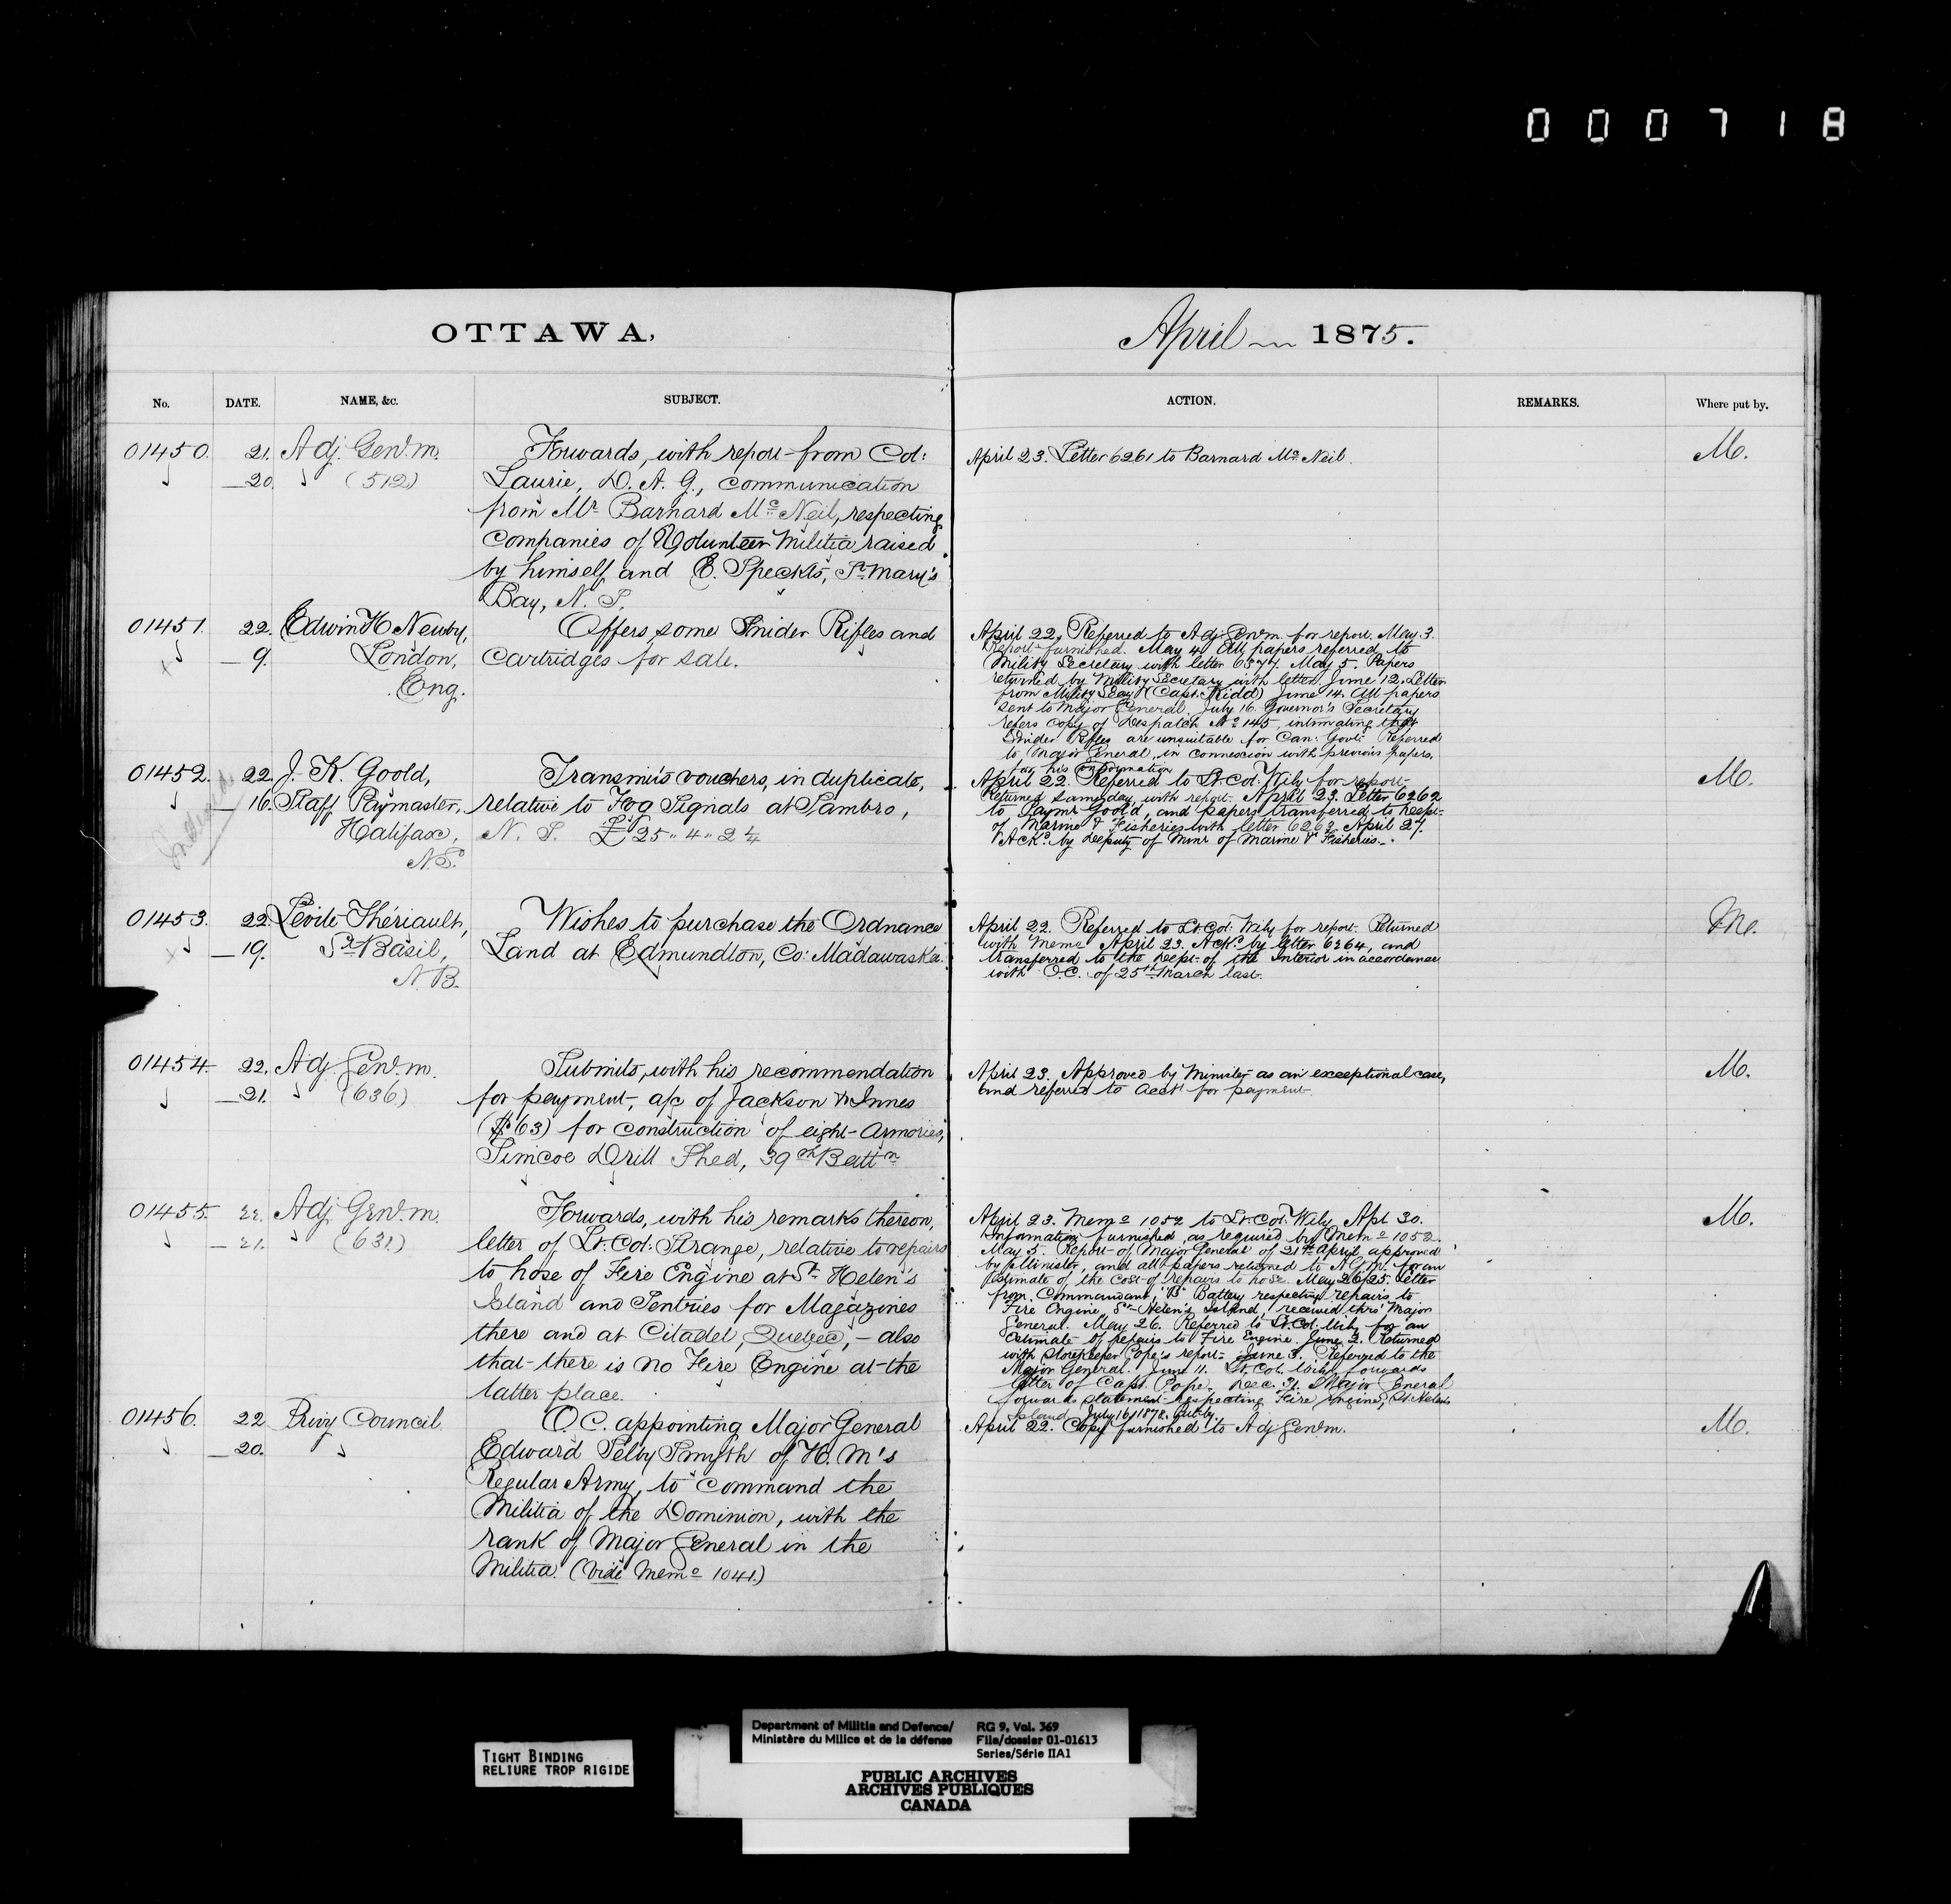 000718
OTTAWA,
April 1875.
No. DATE. NAME, &c. SUBJECT. ACTION. REMARKS. Where put by.
01450. 21. Adj. Genl. m.
20. (512)
Forwards, with report from Col:
Laurie, D. A. G., communication
from Mr. Barnard Mc Neil, respecting
Companies of Volunteer Militia raised
by himself and E. Speckts, St. Mary's
Bay, N. S.
April 23. Letter 6261 to Barnard Mc Neil.
M.
01451. 22. Edwin H Newby,
9. London,
Eng.
Offers some Snider Rifles and
Cartridges for sale.
April 22. Referred to Adj. Genl m. for report. May 3.
Report furnished. May 4. All papers referred to
Military Secretary with letter 6377. May 5. Papers
returned by Military Secretary with letter. June 12. Letter
from Military Secy (Capt. Kidd) June 14. All papers
sent to Major General. July 16. Governor's Secretary
refers copy of Despatch No 145, intimating that
Snider Rifles are unsuitable for Can: Govt: Referred
to Major General, in connexion with previous papers,
for his information
01452. 22. J. K. Goold,
16. Staff Paymaster,
Halifax,
N.S.
Transmits vouchers, in duplicate,
relative to Fog Signals at Sambro,
N. S. £25 " 4 " 2 1/4
April 22. Referred to Lt. Col. Wily for report.
Returned same day, with report. April 23. Letter 6262
to Paymr Goold, and papers transferred to Dept.
of Marine & Fisheries with letter 6263. April 27.
Ackd. by Deputy of Minr of Marine & Fisheries.
M.
01453. 22. Levite Thériault,
19. St. Basil,
N. B.
Wishes to purchase the Ordnance
Land at Edmundton, Co: Madawaska.
April 22. Referred to Lt. Col. Wily for report. Returned
with Memo April 23. Ackd. by letter 6264, and
transferred to the Dept. of the Interior in accordance
with O.C. of 25th March last.
M.
01454. 22. Adj. Genl. m.
21. (636)
Submits, with his recommendation
for payment, a/c of Jackson & Innes
($63) for construction of eight Armories,
Simcoe Drill Shed, 39th Battn
April 23. Approved by Minister as an exceptional case,
and referred to Acct for payment.
M.
01455. 22. Adj. Genl. m.
21. (631)
Forwards, with his remarks thereon,
letter of Lt. Col: Strange, relative to repairs
to hose of Fire Engine at St. Helen's
Island and Sentries for Magazines
there and at Citadel, Quebec, – also
that there is no Fire Engine at the
latter place.
April 23. Memo 1052 to Lt. Col: Wily. Apl 30.
Information furnished, as required by Memo 1052.
May 5. Report of Major General of 21st April approved
by Minister, and all papers returned to A.G.M. for an
estimate of the cost of repairs to hose. May 26/25. Letter
from Commandant, "B" Battery respecting repairs to
Fire Engine, St. Helen's Island, received thro' Major
General. May 26. Referred to Lt. Col. Wily for an
estimate of repairs to Fire Engine. June 2. Returned
with Storekeeper Pope's report. June 3. Referred to the
Major General. June 11. Lt. Col. Wily forwards
letter of Capt. Pope. Dec. 31. Major General
forwards statement respecting Fire Engine, St. Helen's
Island. July 16/1878. Put by.
M.
01456. 22 Privy Council.
20.
O. C. appointing Major General
Edward Selby Smyth of H. M's
Regular Army, to command the
Militia of the Dominion, with the
rank of Major General in the
Militia. (Vide Memo 1041.)
April 22. Copy furnished to Adj Genl m.
M.
TIGHT BINDING
RELIURE TROP RIGIDE
Department of Militia and Defence/ RG 9, Vol. 369
Ministère du Milice et de la défense File/dossier 01-01613
Series/Série IIA1
PUBLIC ARCHIVES
ARCHIVES PUBLIQUES
CANADA